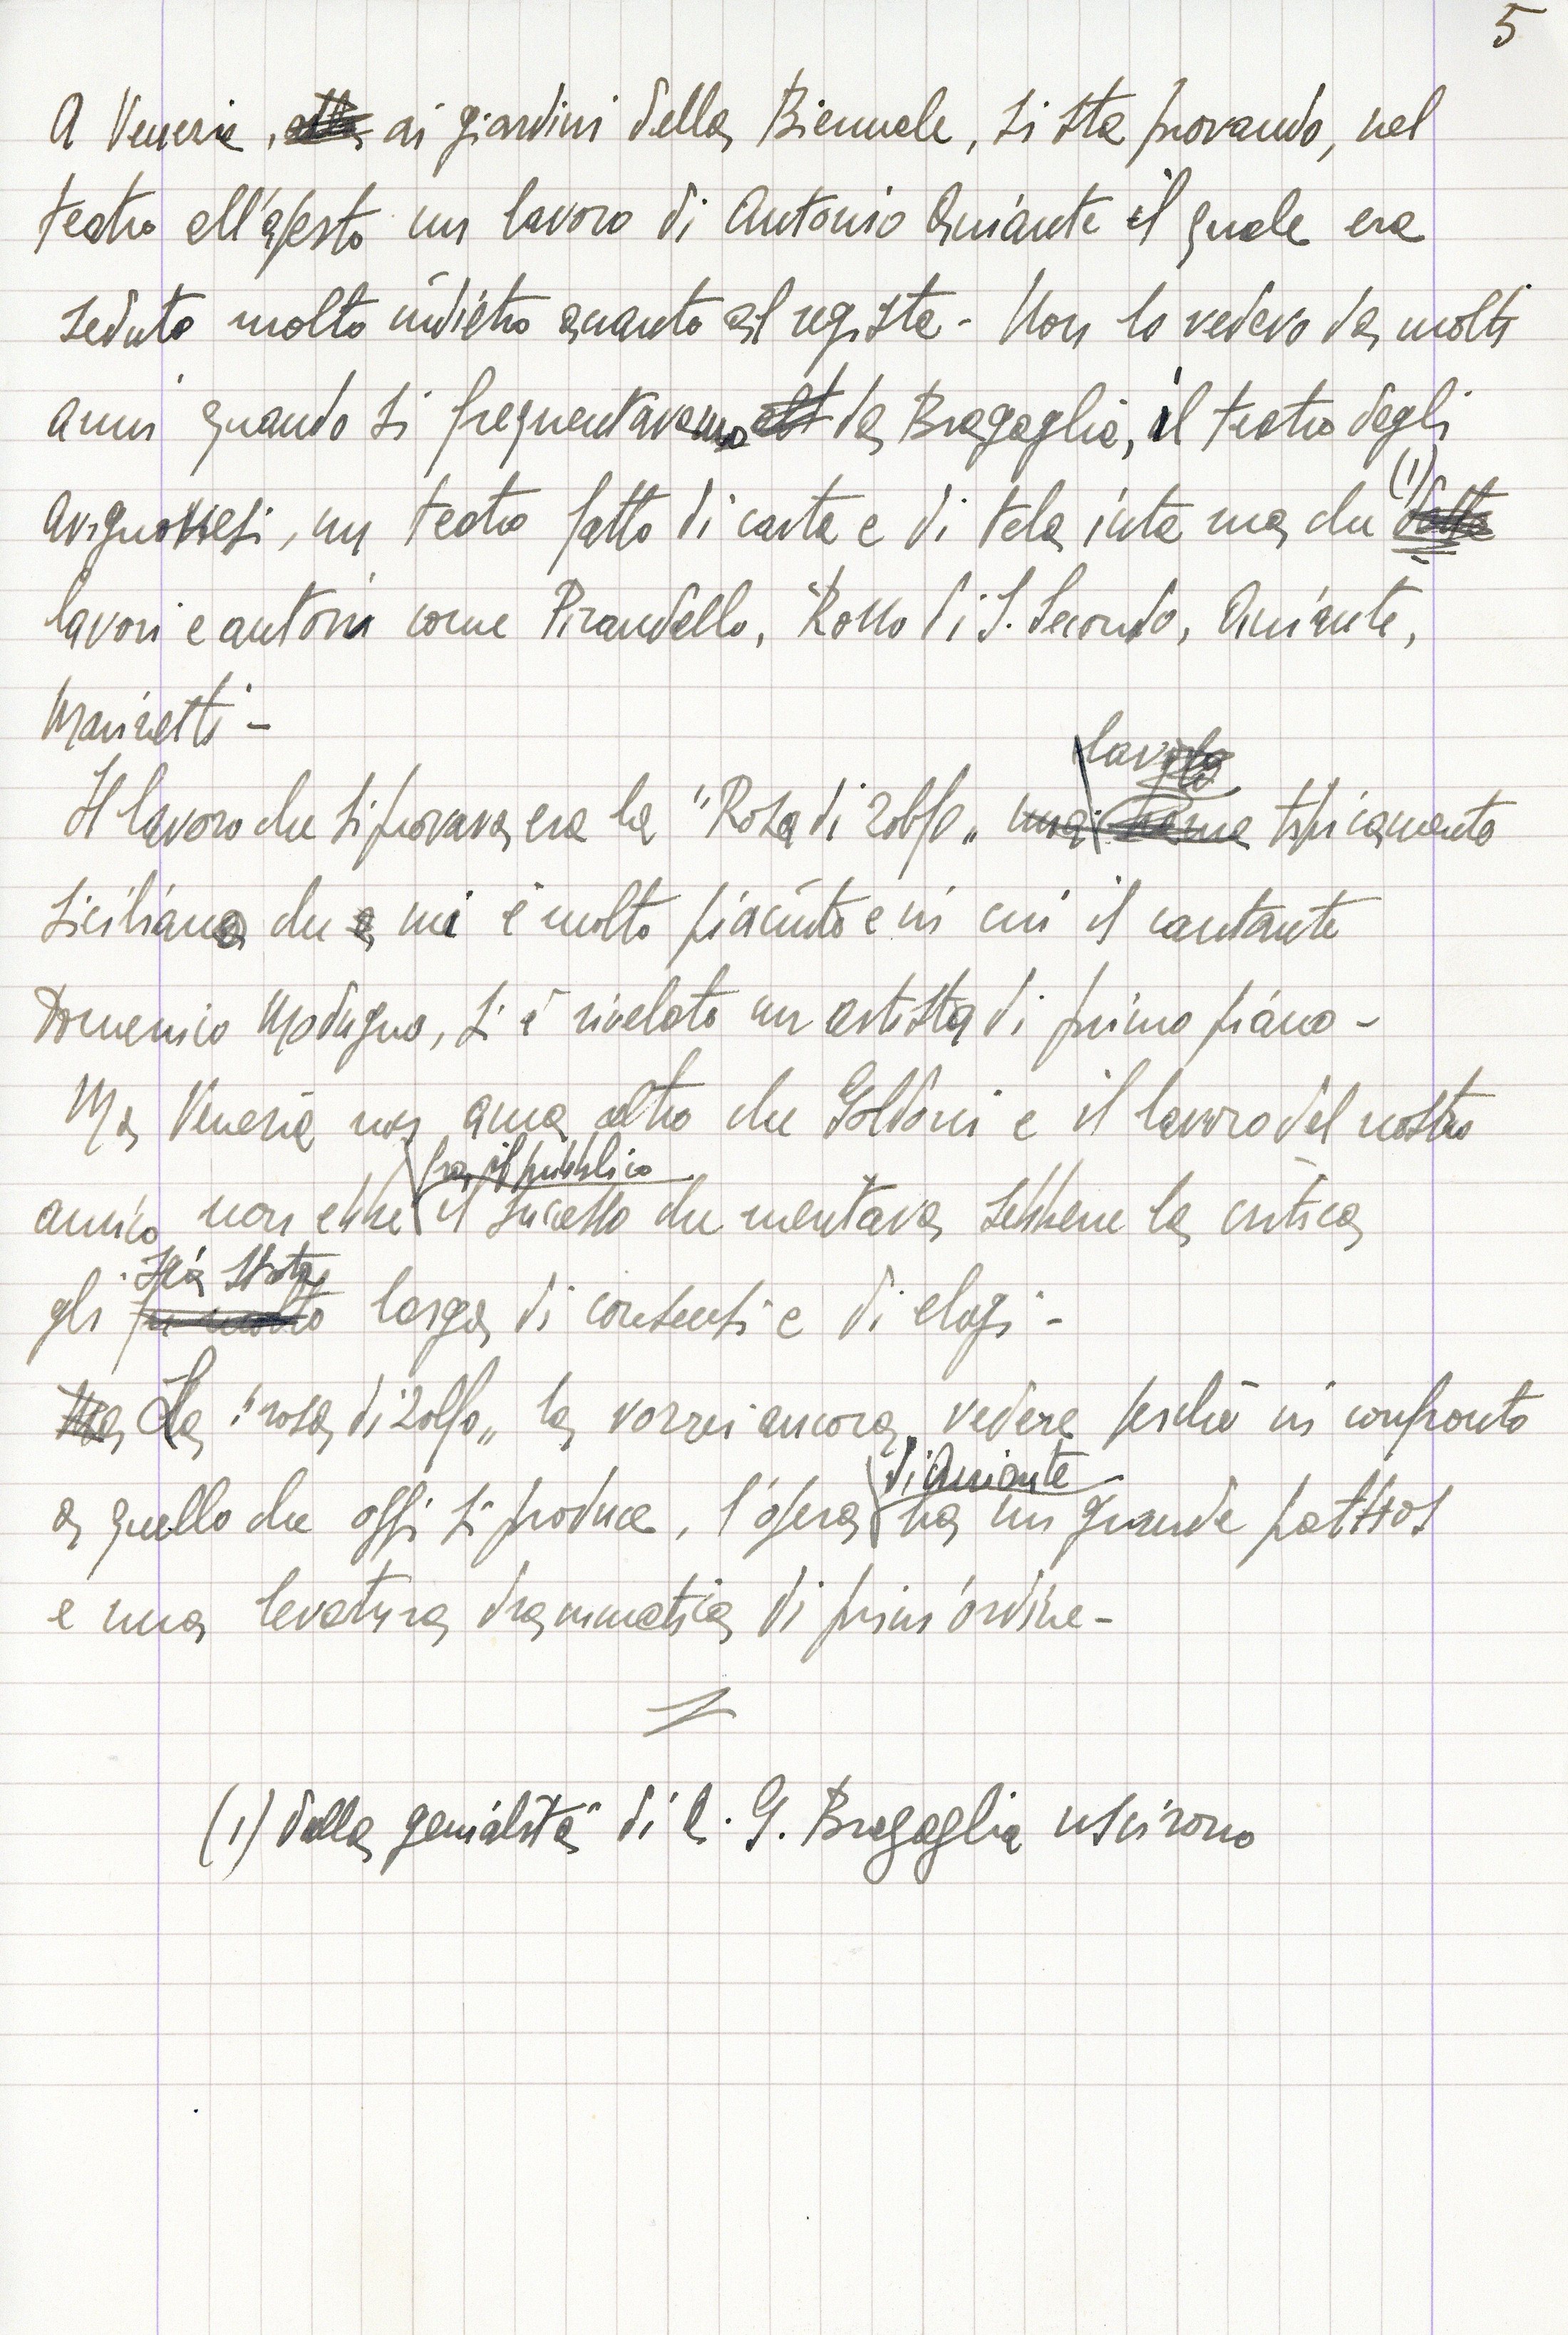 5
A Venezia, ai giardini della Biennale, si sta provando, nel
teatro all'aperto un lavoro di Antonio Aniante il quale era
seduto molto indietro quanto al regista - Non lo vedevo da molti
anni quando si frequentavamo da Bragaglia, il teatro degli
avignonesi, un teatro fatto di carta e di tela iuta ma che (1)
lavori e autori come Pirandello, Rosso di S. Secondo, Aniante,
Marinetti -
lavoro
Il lavoro che si provava era la "Rosa di zolfo„ tipicamente
siciliano che mi è molto piaciuto e in cui il cantante
Domenico Modugno, si è rivelato un artista di primo piano -
Ma Venezia non ama altro che Goldoni e il lavoro del nostro
fra il pubblico
amico non ebbe il sucesso che meritava sebbene la critica
sia stata
gli larga di consensi e di elogi -
La "rosa di zolfo„ la vorrei ancora vedere perchè in confronto
di Aniante
a quello che oggi si produce, l'opera ha un grande pathos
e una levatura drammatica di prim'ordine -
(1) dalla genialità di A. G. Bragaglia uscirono